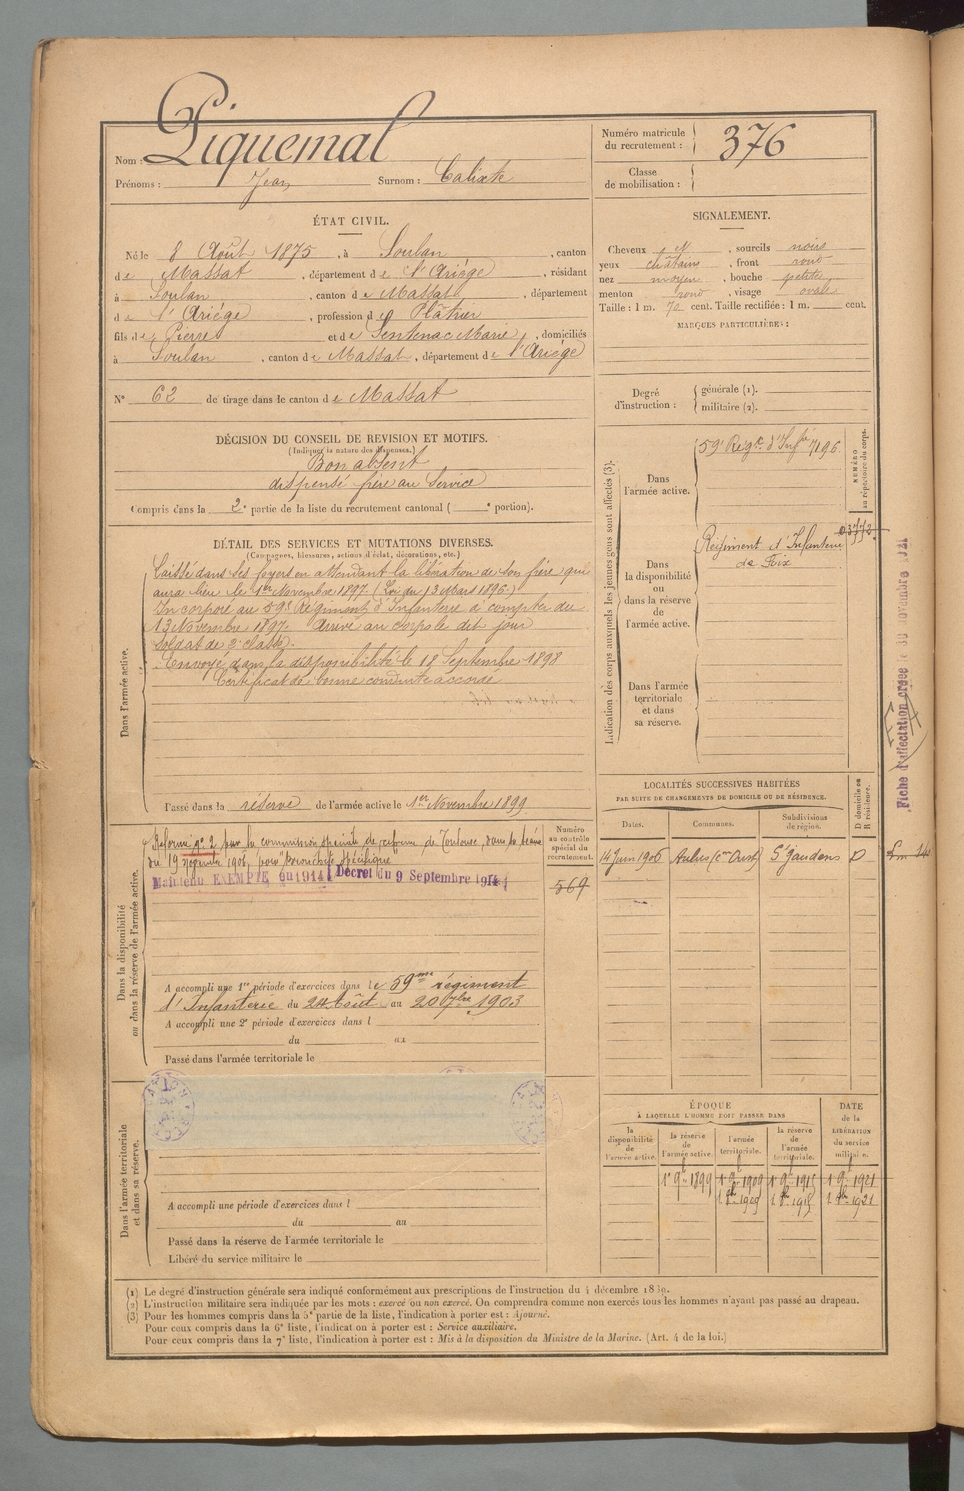 Nom : Piquemal
Prénoms : Jean Surnom : Calixte
Numéro matricule du recrutement : 376
Classe de mobilisation :
ÉTAT CIVIL.
Né le 8 Août 1875, à Soulan, canton
de Massat, département de l'Ariège, résidant
à Soulan, canton de Massat, département
de l'Ariège, profession de Plâtrier
fils de Pierre et de Sentenac Marie, domiciliés
à Soulan, canton de Massat, département de l'Ariège
N° 62 de tirage dans le canton de Massat
SIGNALEMENT.
Cheveux N, sourcils noirs
yeux châtains, front rond
nez moyen, bouche petite
menton rond, visage ovale
Taille : 1 m. 70 cent. Taille rectifiée : 1 m. cent.
MARQUES PARTICULIÈRES :
Degré d'instruction : générale (1). militaire (2).
DÉCISION DU CONSEIL DE REVISION ET MOTIFS.
(Indiquer la nature des dispenses.)
Bon absent
dispensé frère au Service
Compris dans la 2e partie de la liste du recrutement cantonal ( e portion).
DÉTAIL DES SERVICES ET MUTATIONS DIVERSES.
(Campagnes, blessures, actions d'éclat, décorations, etc.)
Dans l'armée active.
Laissé dans ses foyers en attendant la libération de son frère qui
aura lieu le 1er Novembre 1897 (Loi du 13 Mars 1896)
Incorporé au 59e Régiment d'Infanterie à compter du
13 Novembre 1897. Arrivé au corps le dit jour
Soldat de 2e classe.
Envoyé dans la disponibilité le 18 Septembre 1898
Certificat de bonne conduite accordé
Passé dans la réserve de l'armée active le 1er Novembre 1899
Indication des corps auxquels les jeunes gens sont affectés (3).
NUMÉRO au répertoire du corps.
Dans l'armée active.
59e Régt d'Infie 7196
Dans la disponibilité ou dans la réserve de l'armée active.
Régiment d'Infanterie
de Foix
Dans l'armée territoriale et dans sa réserve.
Fiche d'affectation créée le 30 novembre
Dans la disponibilité ou dans la réserve de l'armée active.
Réformé n° 2 par la commission spéciale de réforme de Toulouse, dans la séance
du 19 1906, pour Bronchite spécifique
Maintenu EXEMPTÉ en 1914 (Décret du 9 Septembre 1914)
Numéro au contrôle spécial du recrutement.
569
A accompli une 1re période d'exercices dans le 59me régiment
d'Infanterie du 24 Août au 20 7bre 1903
A accompli une 2e période d'exercices dans l
du au
Passé dans l'armée territoriale le
LOCALITÉS SUCCESSIVES HABITÉES
PAR SUITE DE CHANGEMENTS DE DOMICILE OU DE RÉSIDENCE.
Dates. Communes. Subdivisions de région. D domicile ou R résidence.
14 Juin 1906 Aulus St Gaudens D
Dans l'armée territoriale et dans sa réserve.
A accompli une période d'exercices dans l
du au
Passé dans la réserve de l'armée territoriale le
Libéré du service militaire le
ÉPOQUE
À LAQUELLE L'HOMME DOIT PASSER DANS
la disponibilité de l'armée active. la réserve de l'armée active. l'armée territoriale. la réserve de l'armée territoriale. DATE de la LIBÉRATION du service militaire.
1er 9b 1899 1er 9b 1909 1er 9b 1915 1er 9b 1921
(1) Le degré d'instruction générale sera indiqué conformément aux prescriptions de l'instruction du 4 décembre 1889.
(2) L'instruction militaire sera indiquée par les mots : exercé ou non exercé. On comprendra comme non exercés tous les hommes n'ayant pas passé au drapeau.
(3) Pour les hommes compris dans la 5e partie de la liste, l'indication à porter est : Ajourné.
Pour ceux compris dans la 6e liste, l'indication à porter est : Service auxiliaire.
Pour ceux compris dans la 7e liste, l'indication à porter est : Mis à la disposition du Ministre de la Marine. (Art. 4 de la loi.)